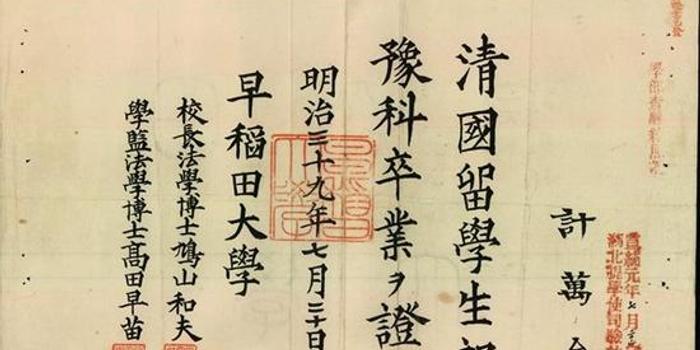 宣統元年七月
湖北提學使司驗
計萬
清國留學生
豫科卒業ヲ證
明治三十九年七月三十日
早稻田大學
校長法學博士鳩山和夫
學監法學博士髙田早苗